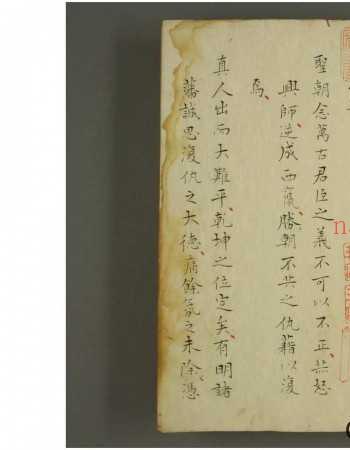 聖朝念萬古君臣之義不可以不正共怒
興師逆成西竄勝朝不共之仇藉以復
焉
真人出而大難平乾坤之位定矣有明諸
藩誠思復仇之大德痛餘氛之未除憑